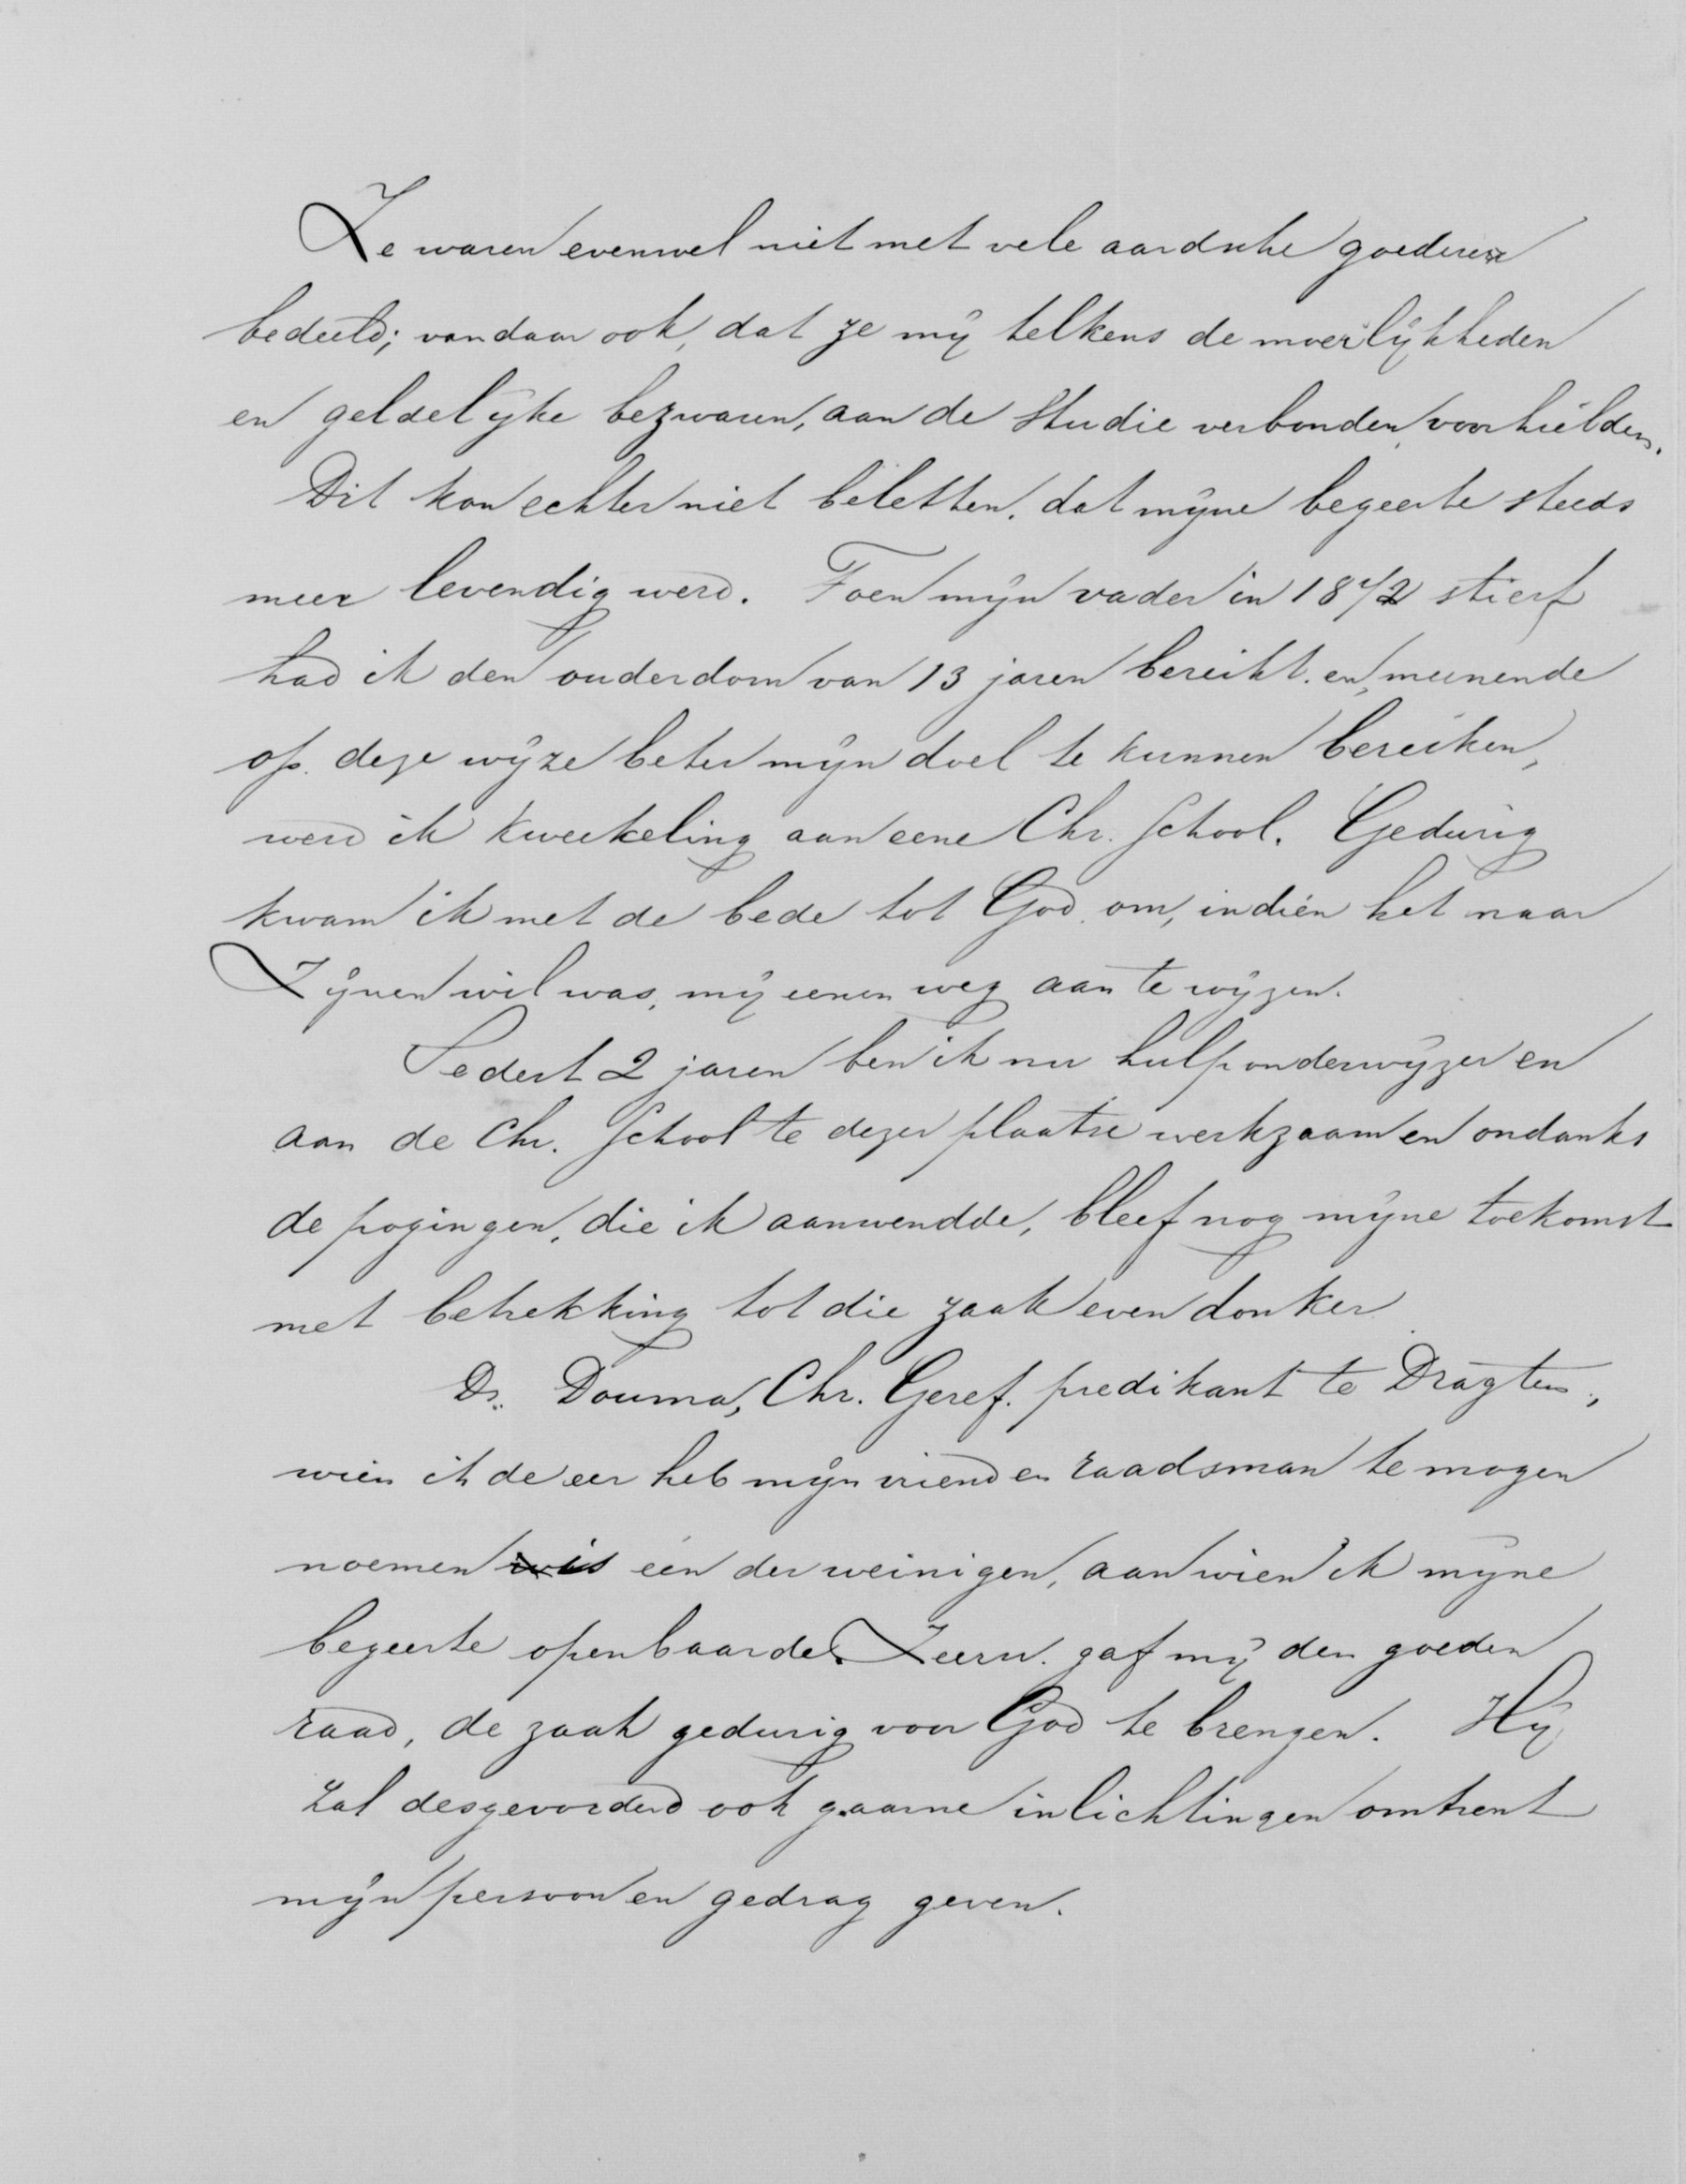 Ze waren evenwel niet met vele aardsche goederen
bedeeld; vandaar ook, dat ze mij telkens de moeilijkheden
en geldelijke bezwaren, aan de studie verbonden, voorhielden.
Dit kon echter niet beletten, dat mijne begeerte steeds
meer levendig werd. Toen mijn vader in 1872 stierf
had ik den ouderdom van 13 jaren bereikt en, meenende
op deze wijze beter mijn doel te kunnen bereiken,
werd ik kweekeling aan eene Chr. School. Gedurig
kwam ik met de bede tot God om, indien het naar
Zijnen wil was, mij eenen weg aan te wijzen.
Sedert 2 jaren ben ik nu hulponderwijzer en
aan de Chr. School te dezer plaatse werkzaam en ondanks
de pogingen, die ik aanwendde, bleef nog mijne toekomst
met betrekking tot die zaak even donker.
Ds. Douma, Chr. Geref. predikant te Dragten,
wien ik de eer heb mijn vriend en raadsman te mogen
noemen is één der weinigen, aan wien ik mijne
begeerte openbaarde. ZEerw. gaf mij den goeden
raad, de zaak gedurig voor God te brengen. Hij
zal desgevorderd ook gaarne inlichtingen omtrent
mijn persoon en gedrag geven.